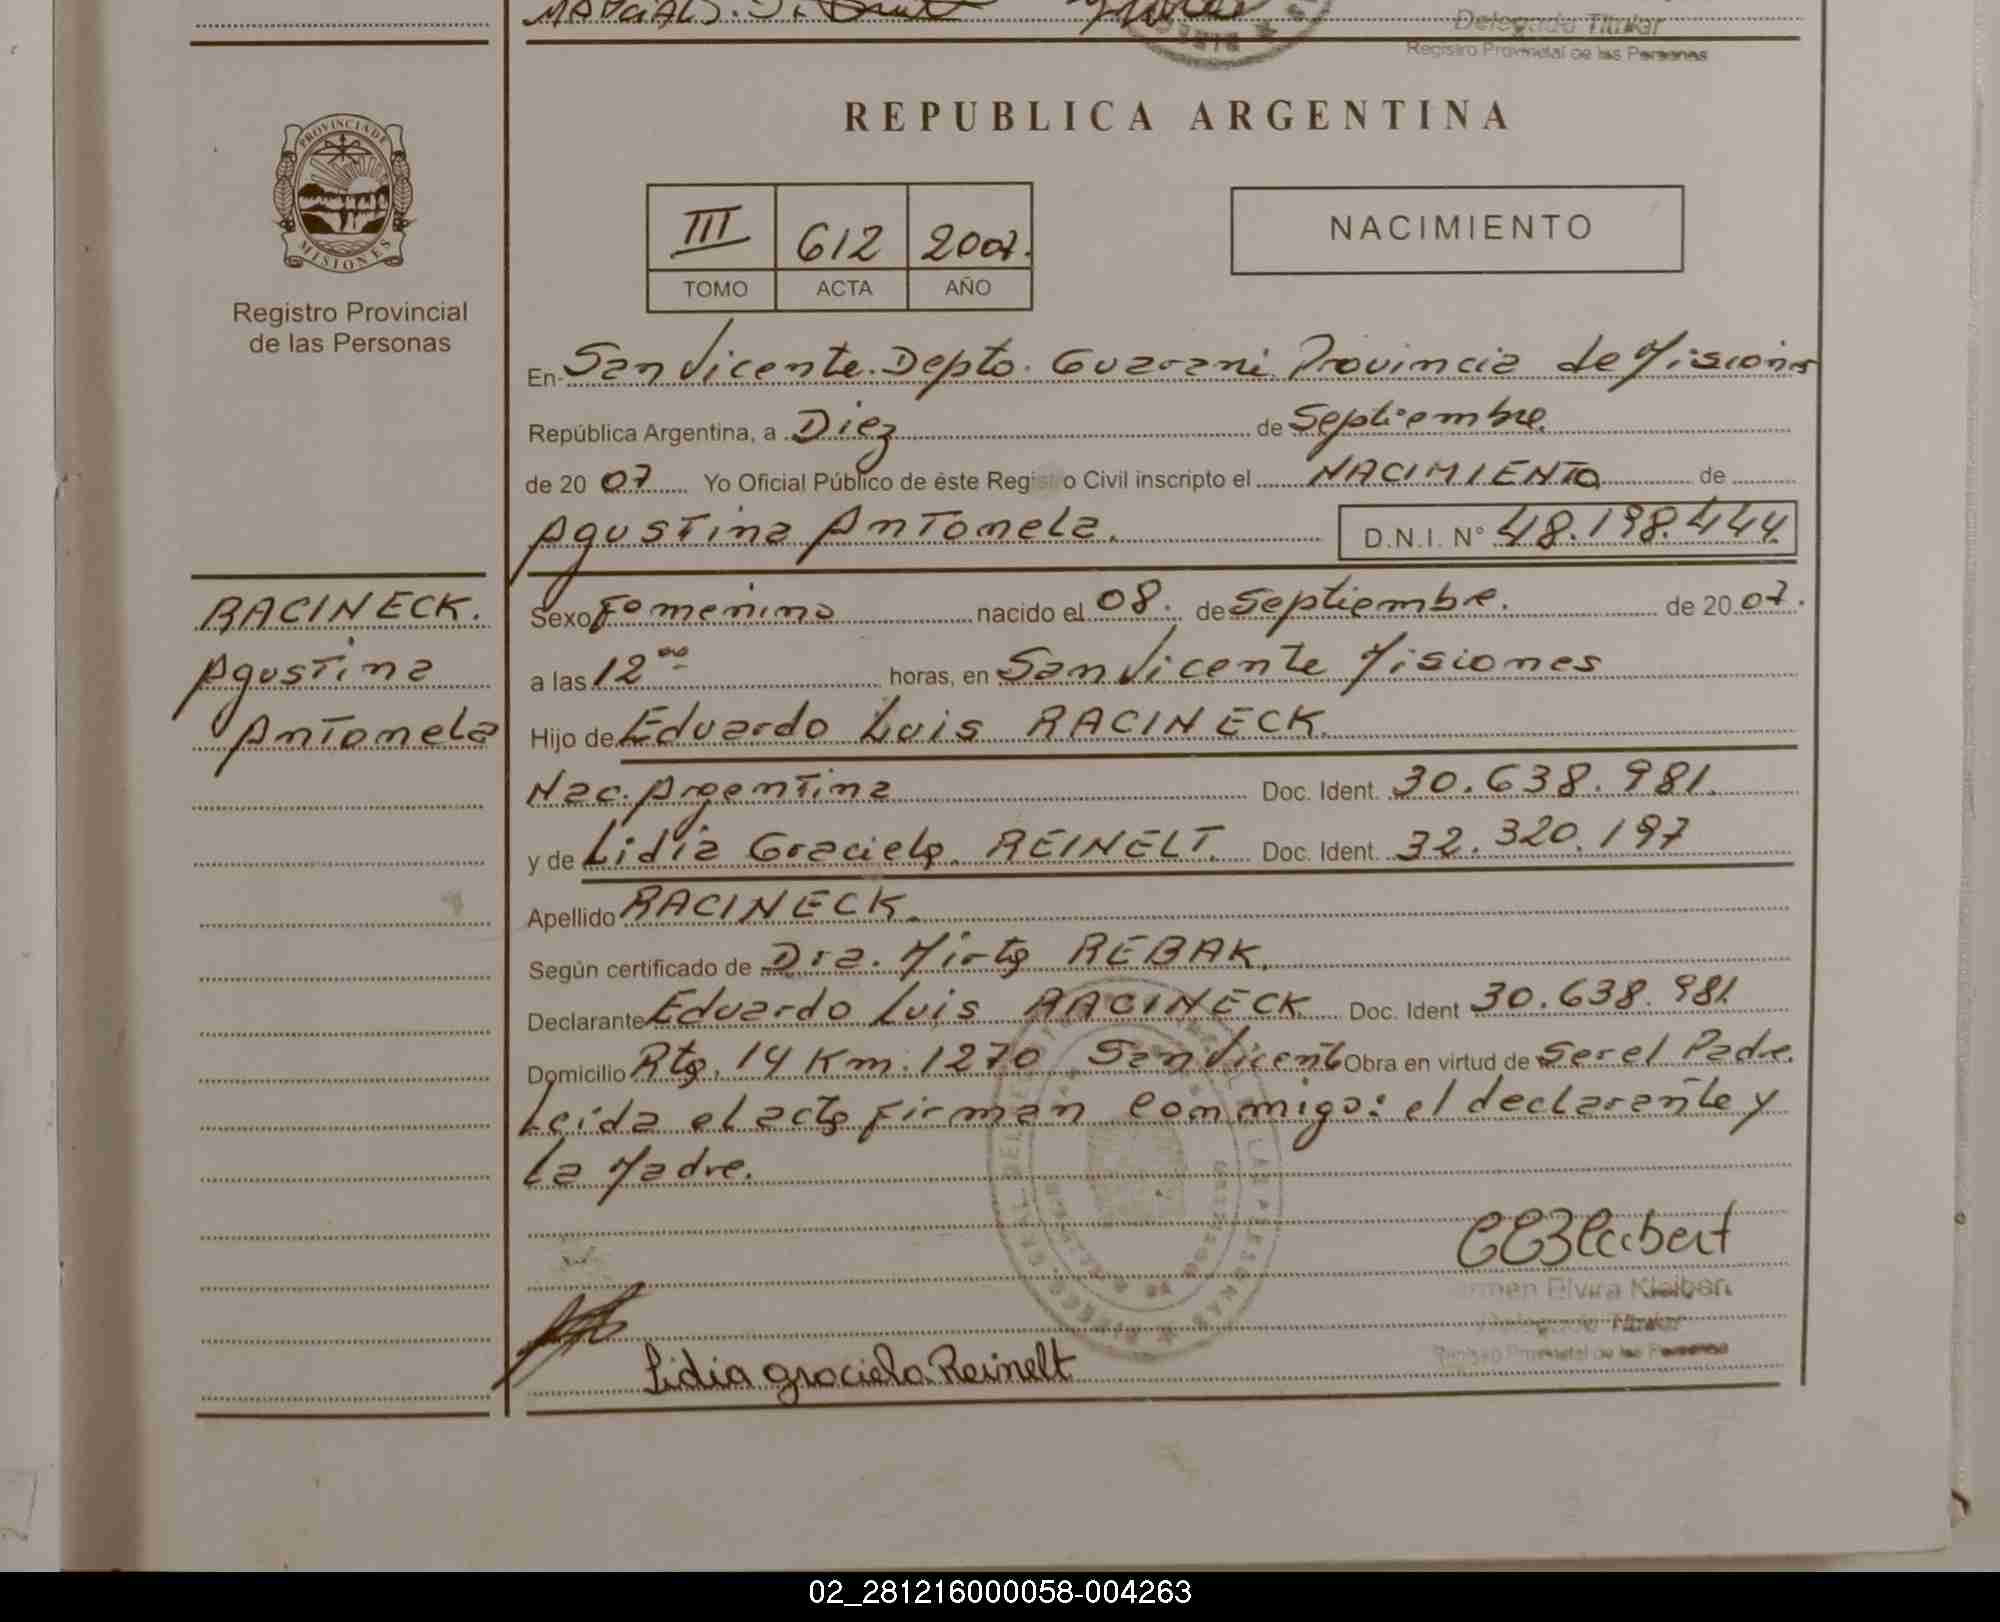 Delegado Titular
Registro Provincial de las Personas
PROVINCIA DE
MISIONES
Registro Provincial
de las Personas
REPUBLICA ARGENTINA
III 612 2007.
TOMO ACTA AÑO
NACIMIENTO
En San Vicente. Depto. Guarani Provincia de Misiones
República Argentina, a Diez de Septiembre.
de 2007 Yo Oficial Público de éste Registro Civil inscripto el NACIMIENTO de
Agustina Antonela. D.N.I. N° 48.198.444.
RACINECK.
Agustina
Antonela
Sexo Femenino nacido el 08. de Septiembre. de 2007.
a las 12 oo horas, en San Vicente Misiones
Hijo de Eduardo Luis RACINECK.
Nac. Argentina Doc. Ident. 30.638.981.
y de Lidia Graciela. REINELT. Doc. Ident. 32.320.197
Apellido RACINECK.
Según certificado de Dra. Mirta REBAK.
Declarante Eduardo Luis RACINECK. Doc. Ident 30.638.981.
Domicilio Rta. 14 Km. 1270 San Vicente Obra en virtud de Ser el Padre.
Leida el acta firman conmigo: el declarante y
la Madre.
Elvira Kleibert
Delegado Titular
Registro Provincial de las Personas
Lidia graciela Reinelt
02_281216000058-004263